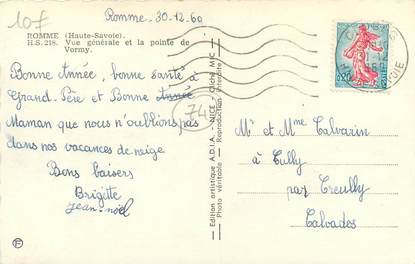 10f
Romme. 30.12.60
ROMME (Haute-Savoie).
H.S. 218. Vue générale et la pointe de
Vormy.
Bonne Année, bonne santé à
Grand-Père et Bonne Année
Maman que nous n'oublions pas
dans nos vacances de neige
Bons baisers
Brigitte
jean-noël
74
Edition artistique A.D.I.A. - NICE - Cliché MIC
Photo véritable - Reproduction interdite
0,20
POSTES
Mr et Mme Calvarin
à Tully
par Creully
Calvados
F